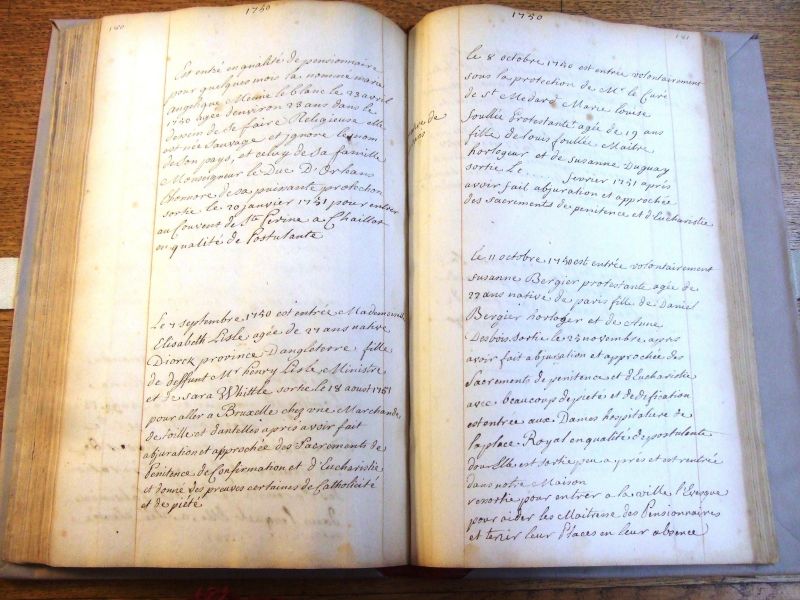 180
1750
Est entré en qualité de pensionnaire
pour quelques mois la nommé marie
angelique Memie le blanc le 23 avril
1750 agée denviron 23 ans dans le
dessein de se faire Religieuse elle
est née Sauvage et ignore le nom
de son pays, et celuy de sa famille
Monseigneur le Duc D'Orleans
lhonnore de sa puissante protection
sortie le 20 janvier 1751 pour entrer
au Couvent de Ste Perine a Chaillot
en qualité de Postulante
Le 7 septembre 1750 est entrée Mademoiselle
Elisabeth Lisle agée de 27 ans native
Diorck province Dangleterre fille
de deffunt Mr henry Lisle Ministre
et de sara Whittle sortie le 18 aoust 1751
pour aller a Bruxelle chez une Marchande
de toille et dantelles apres avoir fait
abjuration et approchée des Sacrements de
Penitence de Confirmation et d'Eucharistie
et donné des preuves certaines de Catholicité
et de piété
1750
181
le 8 octobre 1750 est entrée volontairement
sous la protection de Mr le Curé
de St Medard Marie louise
foullée Protestante agée de 19 ans
fille de louis foullée Maitre
horlogeur et de Susanne Duguay
sortie Le fevrier 1751 après
avoir fait abjuration et approchée
des sacrements de penitence et d'Eucharistie
le 11 octobre 1750 est entrée volontairement
susanne Bergier protestante agée de
22 ans native de paris fille de Daniel
Bergier horloger et de Anne
Desbois sortie le 25 novembre apres
avoir fait abjuration et approchée des
Sacrements de penitence et d'Eucharistie
avec beaucoup de pieté et dedification
est entrée aux Dames hospitaliere de
la place Royal en qualité de postulante
dou Elle est sortie peu apres et est rentrée
dans notre Maison
ressortie pour entrer a la ville l'Evesque
pour aider les Maitresse des Pensionnaires
et tenir leur Places en leur absence